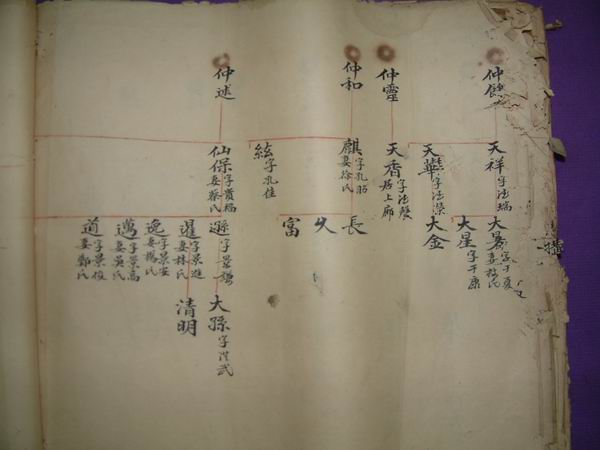 仲
仲靈
仲和
仲述
天祥字法瑞
天華字法榮
天香字法
居上廊
麒字孔昭
妻徐氏
絃字孔佳
仙保字貴福
妻蔡氏
大
字于夏
妻
氏
大星字于康
大金
長
久
富
遜字景謙
暹字景進
妻林氏
逸字景安
妻楊氏
邁字景高
妻吳氏
道字景俊
妻鄭氏
大孫字洪武
清明